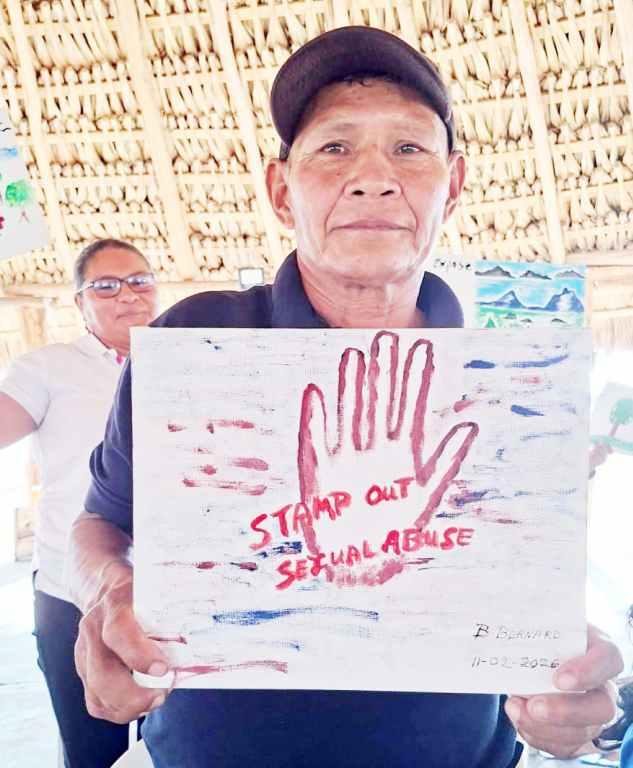 STAMP OUT
SEXUAL ABUSE
B BERNARD
11-02-2026